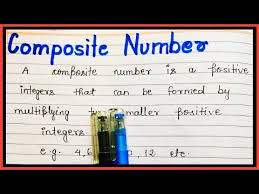 Composite Number
A composite number is a positive
integers that can be formed by
multiplying smaller positive
integers
e.g. 4, 6 0, 12 etc